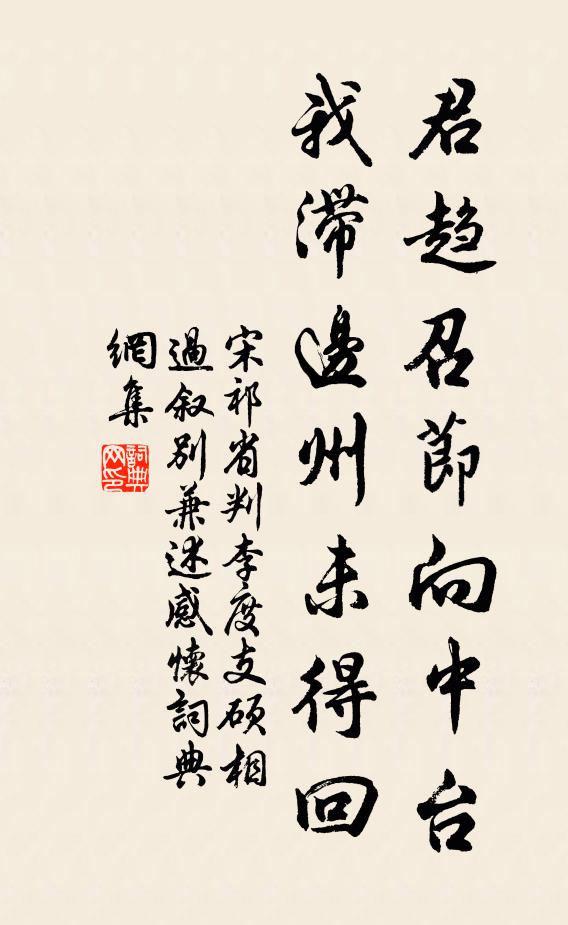 君趋召節向中台
我滯邊州未得回
宋祁省判李度支硕相
過叙别兼述感懷詞典
網集
詞典
网印